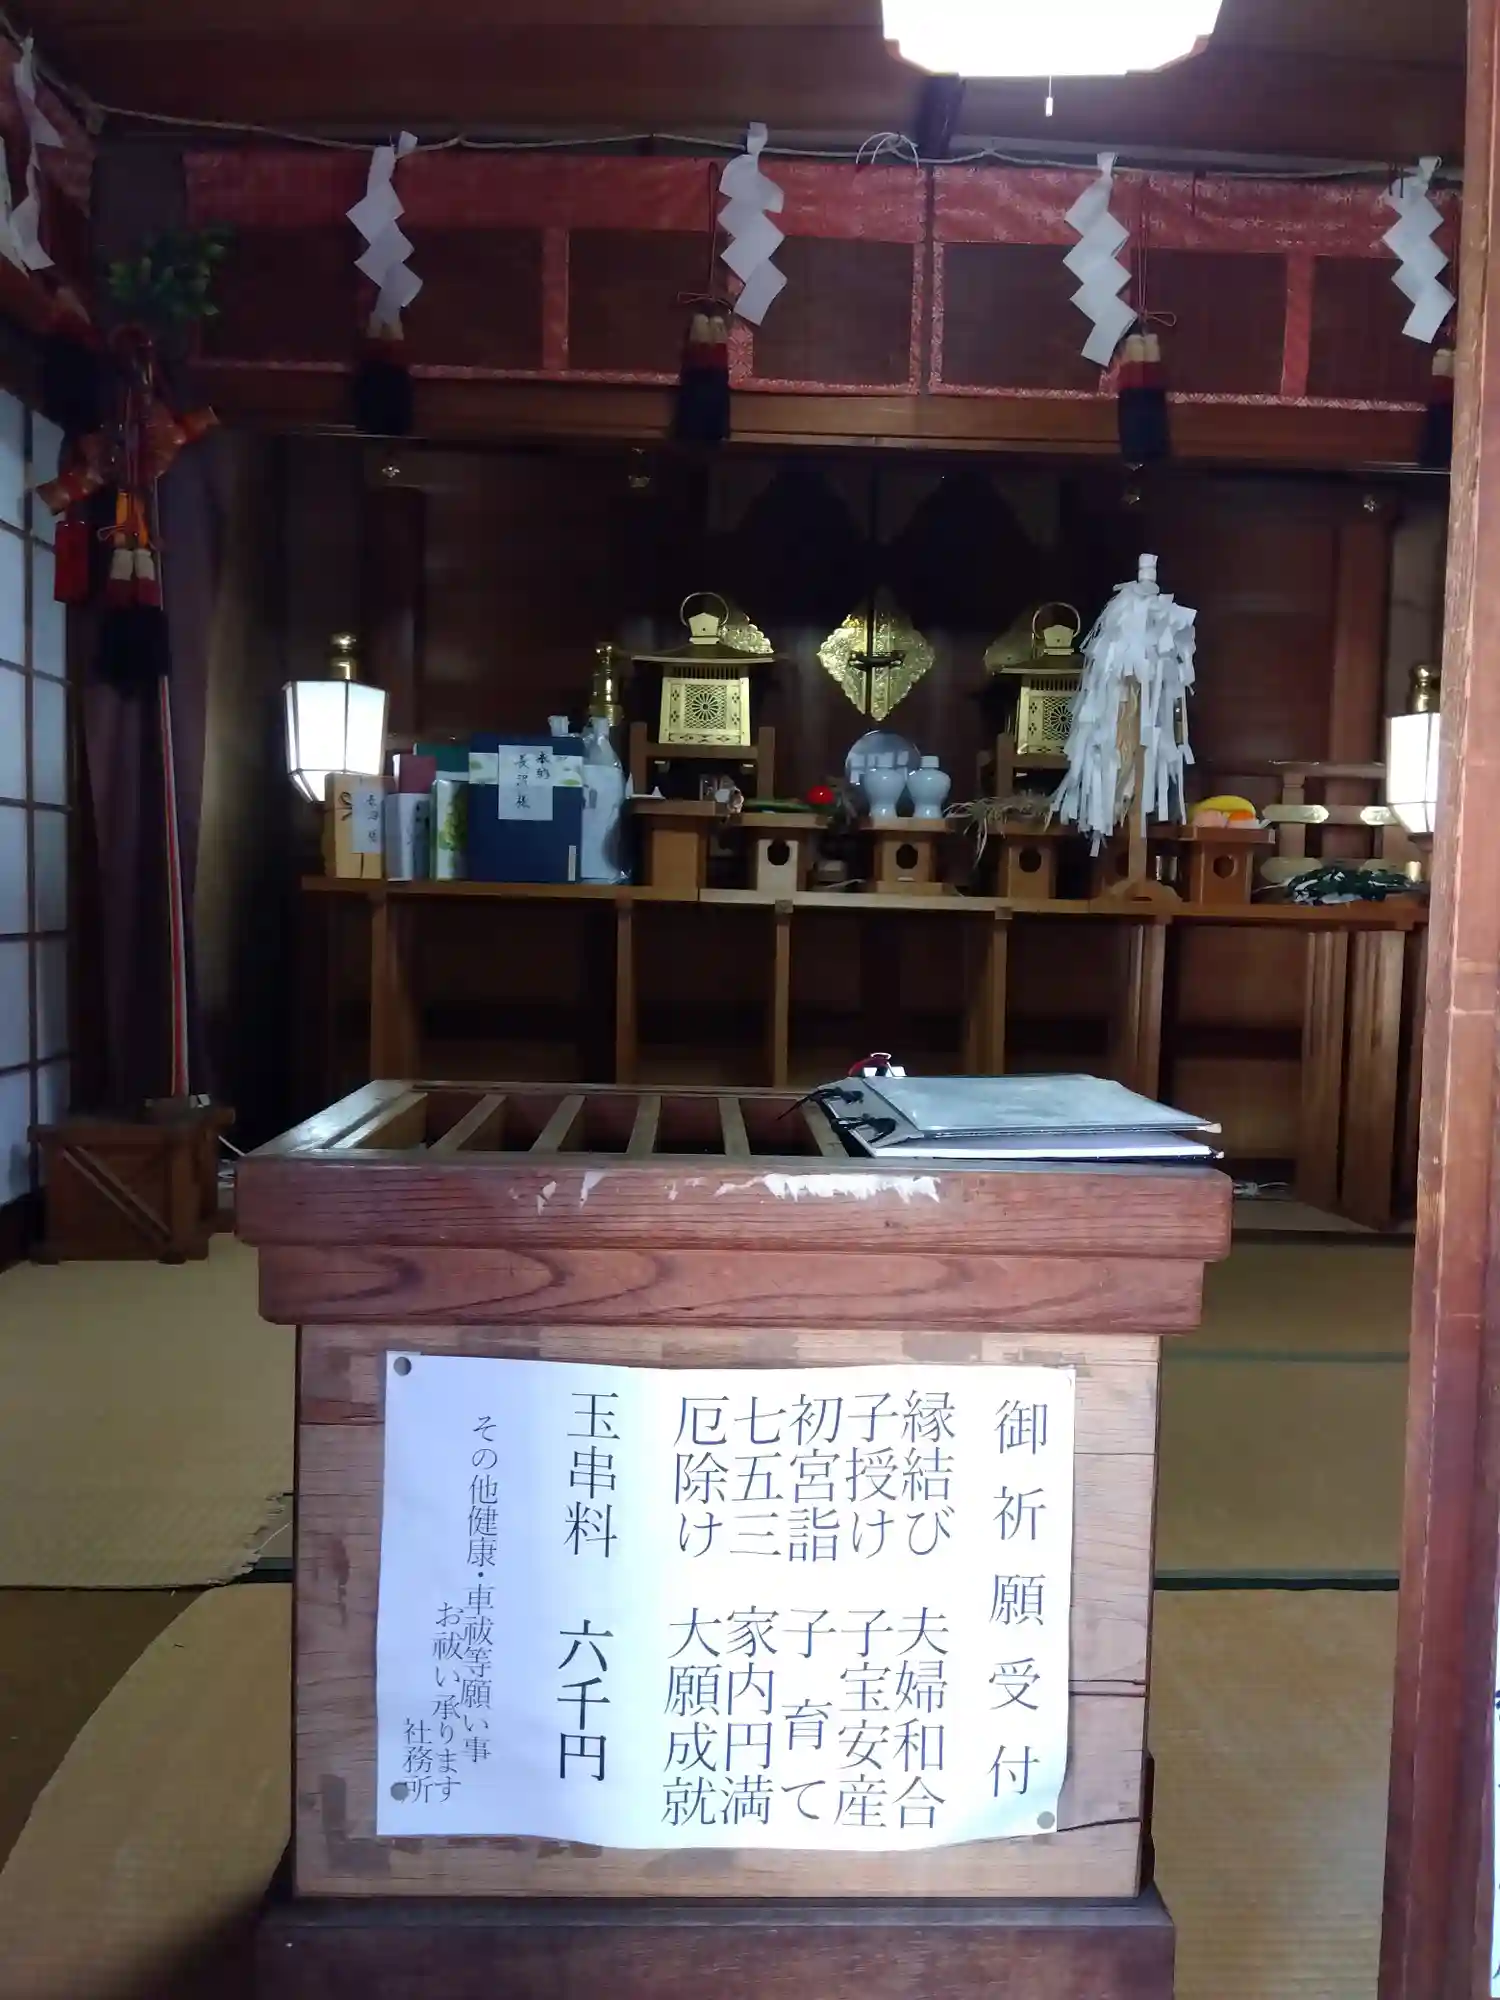 御祈願受付
縁結び 夫婦和合
子授け 子宝安産
初宮詣 子育て
七五三 家内円満
厄除け 大願成就
玉串料 六千円
その他健康・車祓等願い事
お祓い承ります
社務所
奉納
長沼様